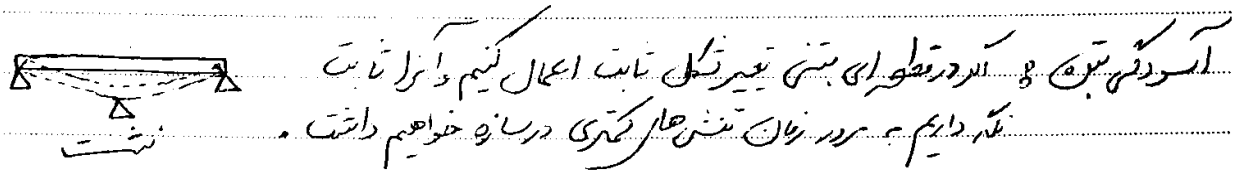 آسودگی بتن : اگر در قطعه ای بتنی تغییر شکل ثابت اعمال کنیم و آنرا ثابت
نگه داریم به مرور زمان تنش های کمتری در سازه خواهیم داشت .
نشست